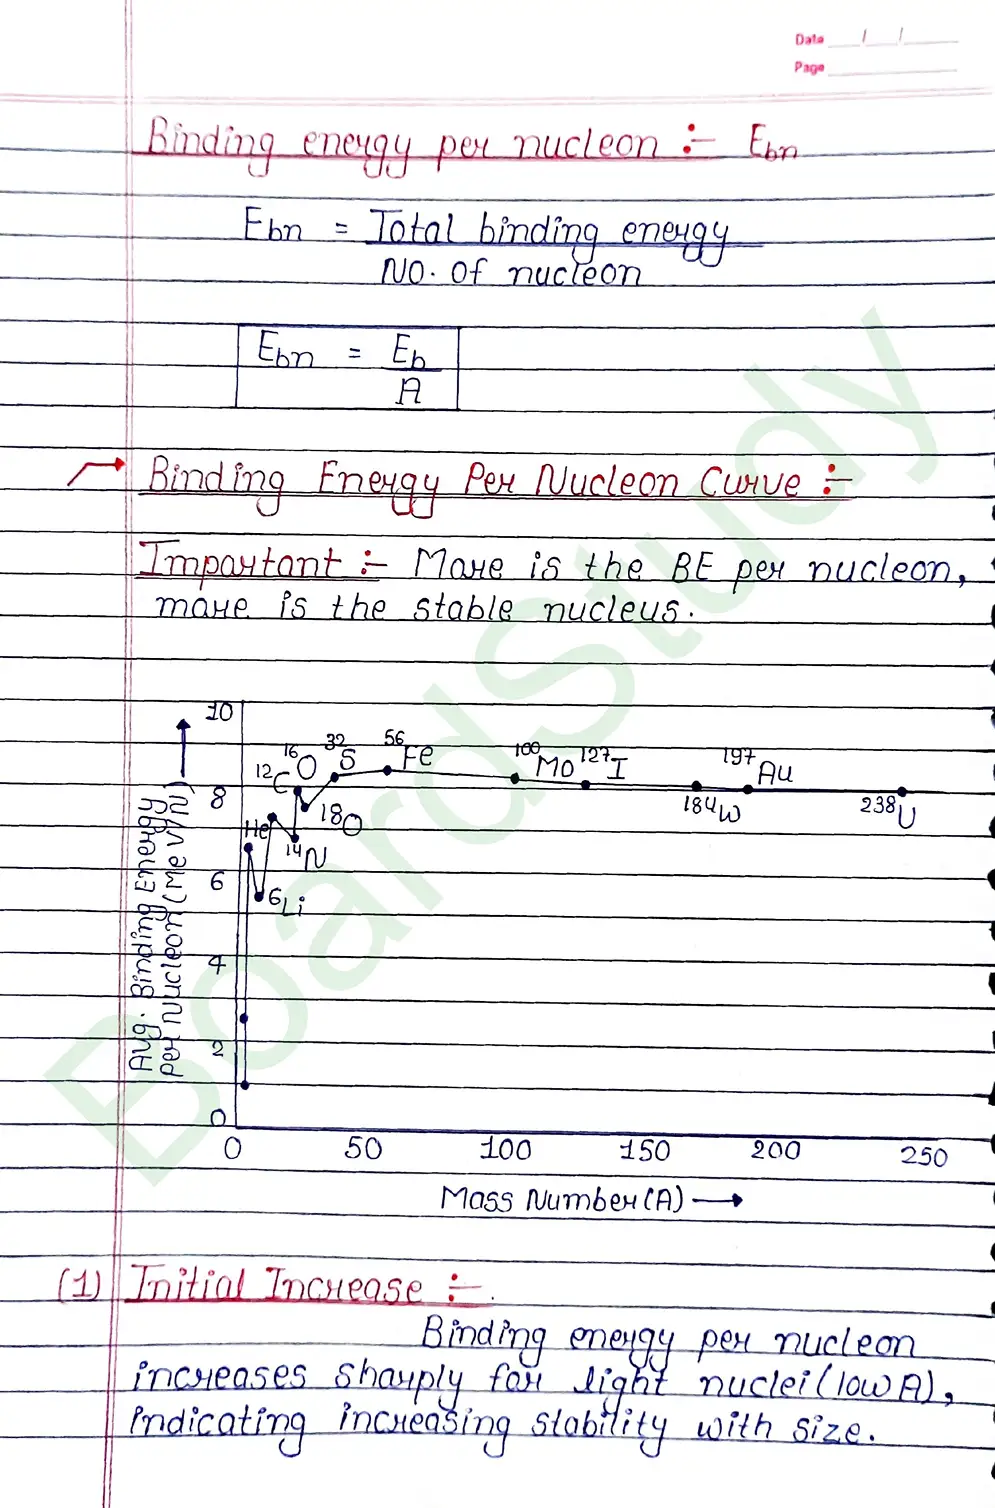 Date / /
Page
Binding energy per nucleon :- Ebn
Ebn = Total binding energy
No. of nucleon
Ebn = Eb
A
Binding Energy Per Nucleon Curve :-
Important :- More is the BE per nucleon,
more is the stable nucleus.
Avg. Binding Energy
per Nucleon (MeV/N)
10
8
6
4
2
0
He
6Li
12C
14N
16O
18O
32S
56Fe
100Mo
127I
184W
197Au
238U
0 50 100 150 200 250
Mass Number (A)
(1) Initial Increase :-
Binding energy per nucleon
increases sharply for light nuclei (low A),
indicating increasing stability with size.
BoardStudy